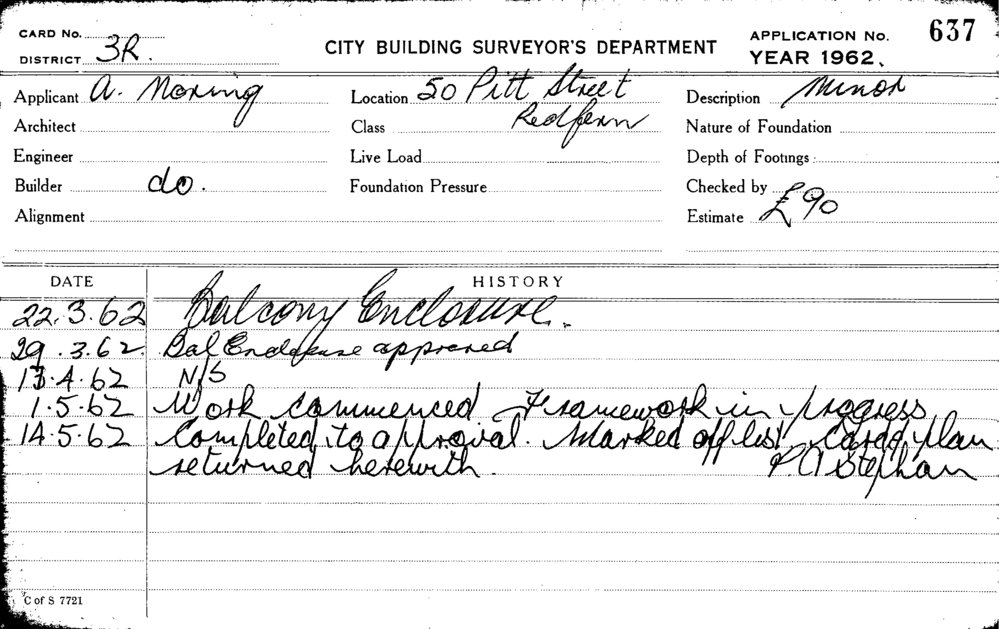 CARD No.
DISTRICT 3R.
CITY BUILDING SURVEYOR'S DEPARTMENT
APPLICATION No. 637
YEAR 1962.
Applicant A. Moring
Location 50 Pitt Street
Redfern
Description Minor
Architect
Class
Nature of Foundation
Engineer
Live Load
Depth of Footings
Builder do.
Foundation Pressure
Checked by
Alignment
Estimate £90
DATE HISTORY
22.3.62 Balcony Enclosure.
29.3.62. Bal Enclosure approved
13.4.62 N/S
1.5.62 Work commenced Framework in progress
14.5.62 Completed to approval. Marked off list. Card & plan
returned herewith. P. A Stephan
C of S 7721